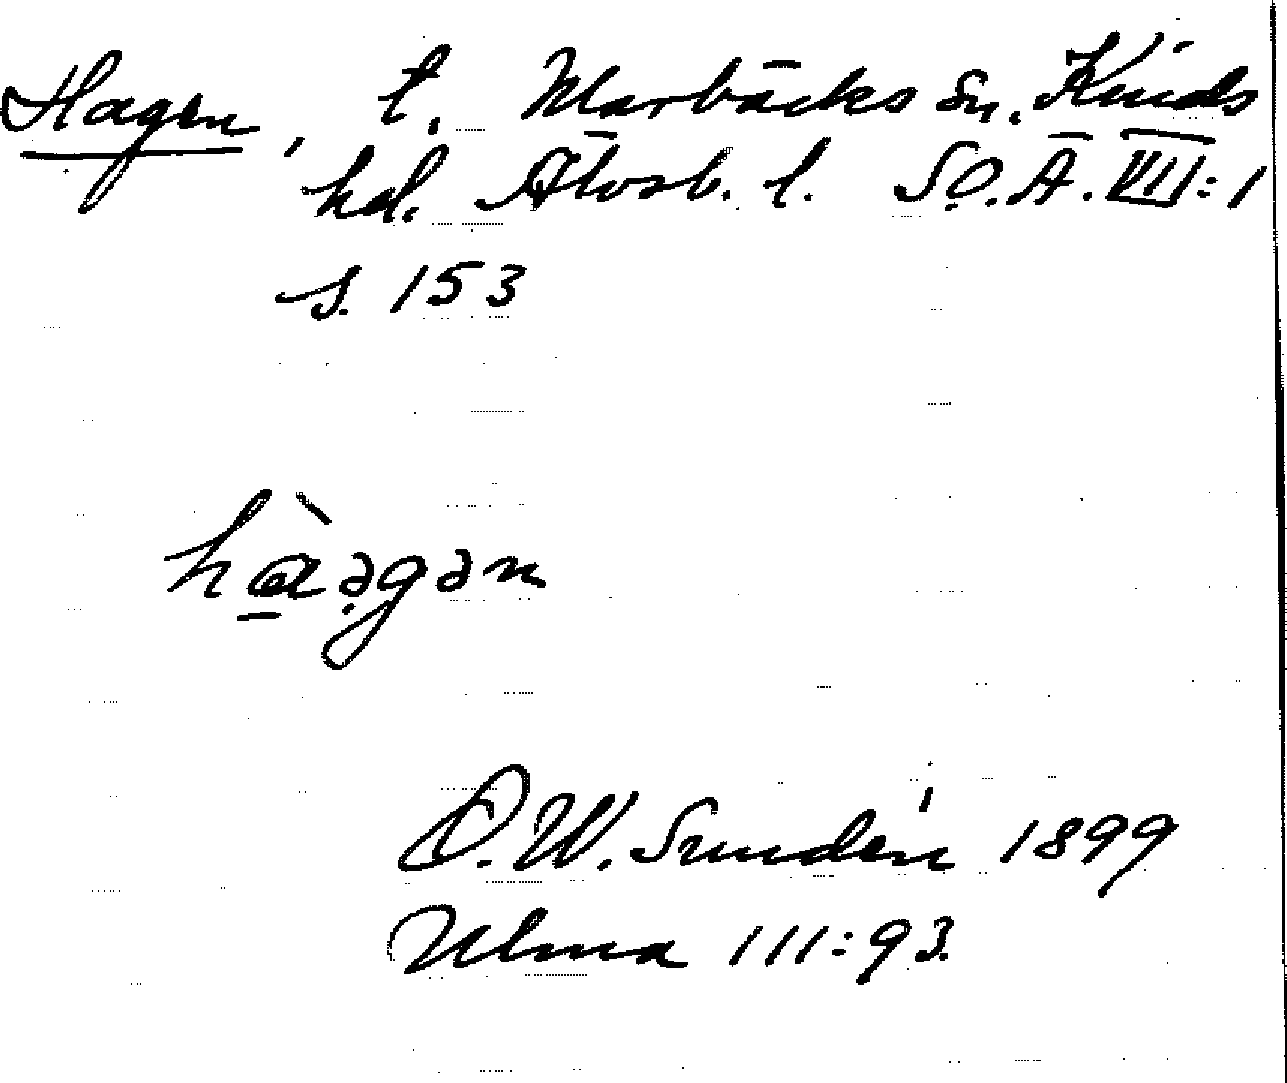 Hagen, t. Marbäcks sn. Kinds
hd. Älvsb. l. S.O.Ä. VII:1
s. 153
hàə̣gən
D.W. Sundén 1899
Ulma 111:93.